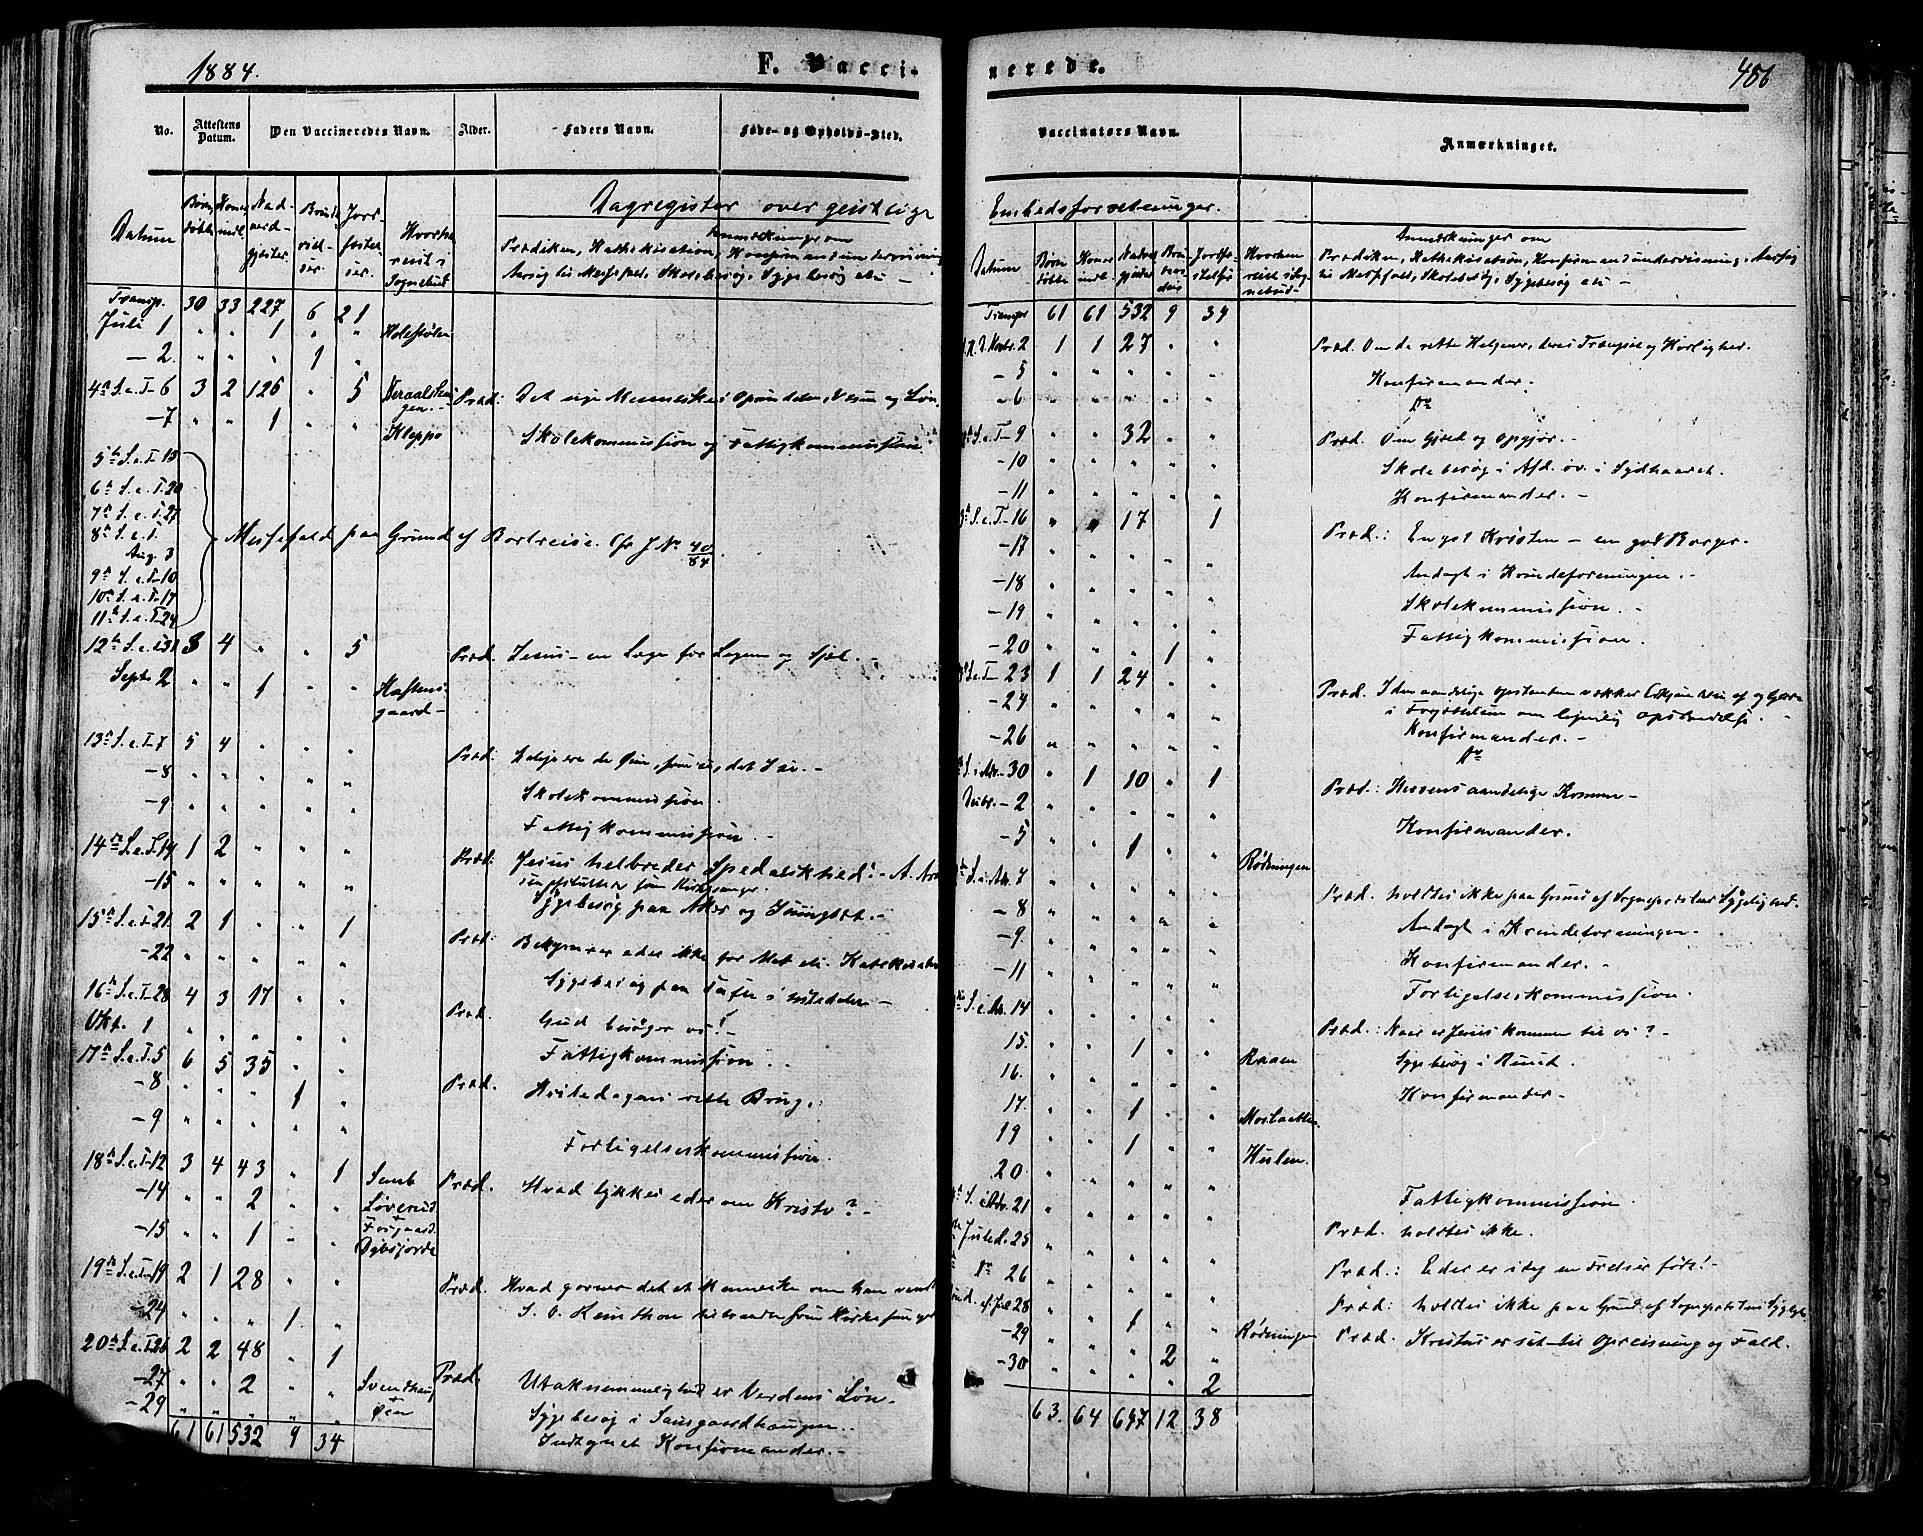 1884.
F. Vacci-
No.
Attestens Datum.
Den Vaccineredes Navn.
Alder.
Faders Navn.
Føde- og Opholds-Sted.
Dagregister over geistlige
Datum
Børn døbte
Koner indl
Nad- verd- gjester
Brude- viel- ser
Jord- festel- ser
Anmærkninger om
Prædiken, Kathekisation, Konfirmandundervisning
Aarsag til Messefald, Skolebesøg, Sygebesøg etc -
Transp. 30 33 227 6 21
Juli 1 " " 1 " " Holestølen
- 2. " " " 1 "
4de S. e. T. 6 3 2 126 " 5 Præd: Det nye Menneskes Oprindelse, Væsen og Løn.
- 7 " " 1 " " Kleppo Skolekommission og Fattigkommission
5te S. e. T. 13
6te S. e. T. 20
7de S. e. T. 27
8de S. e. T. Aug. 3
Messefald paa Grund af Bortreise. Cfr J. No 40/84
9de S. e. T. 10
10de S. e. T. 17
11te S. e. T. 24
12te S. e. T. 31 3 4 " " 5 Præd. Jesus - en Læge for Legem og Sjæl. -
Sept. 2 " " 1 " " Haftens- gaard -
13de S. e. T. 7 5 4 " " " Præd.
- 8 " " " " " Skolekommission.
- 9 " " " " " Fattigkommission. -
14de S. e. T. 14 1 2 " " " Præd: Jesus helbreder Spedalskhed! -
- 15 " " " " " Sygebesøg paa
15de S. e. T. 21 2 1 " " 1 Præd: Bekymrer eder ikke for Mad etc.
- 22 " " " " " Sygebesøg paa
16de S. e. T. 28 4 3 17 " " Præd. Gud besøger os! -
Okt. 1 " " " " " Fattigkommission.
17de S. e. T. 5 6 5 35 " " Præd. Hviledagens rette Brug.
- 8 " " " 1 "
- 9 " " " " " Forligelseskommission.
18de S. e. T. 12 3 4 43 " 1 Præd. Hvad tykkes eder om Kristo? -
- 14 " " 2 " " Løverud
- 15 " " 1 " "
19de S. e. T. 19 2 1 28 " " Præd. Hvad gavner det et Menneske om han vandt
- 24 " " " 1 "
20de S. e. T. 26 2 2 48 " 1 Præd. Utaknemmelighed er Verdens Løn.
- 27 " " 2 " " Svendhaug Øen Sygebesøg i Sansgaardhaugen.
- 29 " " " " " Indtegnet Konfirmander. -
61 61 532 9 34
nerede.
456
Vaccinators Navn.
Anmærkninger.
Embedsforretninger.
Datum
Børn døbte
Koner indl
Nadver gjester
Bru- vie- dse
Jordfæ- stelser
Hvorhen reist i Sog- nebud -
Anmærkninger om
Prædiken, Kathekisation, Konfirmandundervisning, Aarsag
til Messefald, Skolebesøg, Sygebesøg etc -
Transp. 61 61 532 9 34
Novbr. 2 1 1 27 " " Præd. Om de rette Helgener, deres Trængsel og Herlighed.
- 5 " " " " " Konfirmander. -
- 6 " " " " " Do
S. e. T. 9 " " 32 " " Præd. Om Gjæld og Opgjør. -
- 10 " " " " " Skolebesøg i Afd. öv. i Sydhaaret.
- 11 " " " " " Konfirmander. -
S. e. T. 16 " " 17 " 1 Præd.: En god Kristen - en god Borger.
- 17 " " " " " Andagt i Kvindeforeningen. -
- 18 " " " " " Skolekommission. -
- 19 " " " " " Fattigkommission.
- 20 " " " 1 "
S. e. T. 23 1 1 24 " " Præd.
- 24 " " " " " Konfirmander. -
- 26 " " " " " Do
S. i Adv. 30 " 1 10 " 1 Præd.: Herrens aandelige Komme -
Decbr. - 2 " " " " " Konfirmander.
- 5 " " 1 " " Rødningen
S. i Adv. 7 " " " " " Præd. holdtes ikke paa Grund af Sognepræstens Sygelighed.
- 8 " " " " " Andagt i Kvindeforeningen -
- 9. " " " " " Konfirmander. -
- 11 " " " " " Forligelseskommission.
S. i Adv. 14 " " " " " Præd.: Naar er Jesus kommen til os? -
15. " " 1 " " Raaen Sygebesøg i Ruud.
16. " " " " " Konfirmander -
17. " " 1 " "
19 " " 1 " "
20. " " " " " Fattigkommission.
S. i Adv. 21 " " " " " Præd. holdtes ikke.
Juled. 25 " " " " " Præd.: Eder er idag en Frelser født! -
Do 26 " " " " " Præd: holdtes ikke paa Grund af Sognepræstens Sygelighed
Sønd. ef. Jul 28 " " " " " Præd. Kristus er sat til Opreisning og Fald.
- 29 " " 1 " " Rødningen
- 30 " " " 2 "
2
63. 64 647 12 38